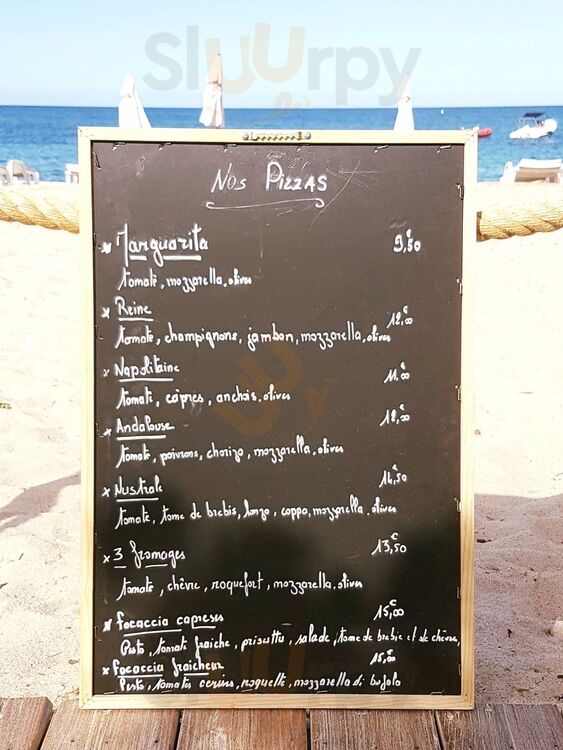 Sluurpy
Nos PizzAs
* Marguarita 9,€50
tomate, mozzarella, olives
* Reine 12,€00
tomate, champignons, jambon, mozzarella, olives
* Napolitaine 11,€00
tomate, câpres, anchois, olives
* Andalouse 12,€00
tomate, poivrons, chorizo, mozzarella, olives
* Nustrale 14,€50
tomate, tome de brebis, lonzo, coppa, mozzarella, olives
* 3 fromages 13,€50
tomate, chèvre, roquefort, mozzarella, olives
* focaccia capreses 15,€00
Pesto, tomate fraîche, priscuttu, salade, tome de brebis et de chèvre,
* focaccia fraîcheur 15,€00
Pesto, tomates cerises, roquette, mozzarella di bufala